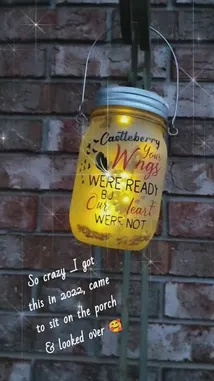 Castleberry
Your
Wings
WERE READY
BU
Our Heart
WERE NOT
So crazy I got
this in 2022, came
to sit on the porch
& looked over 🥰